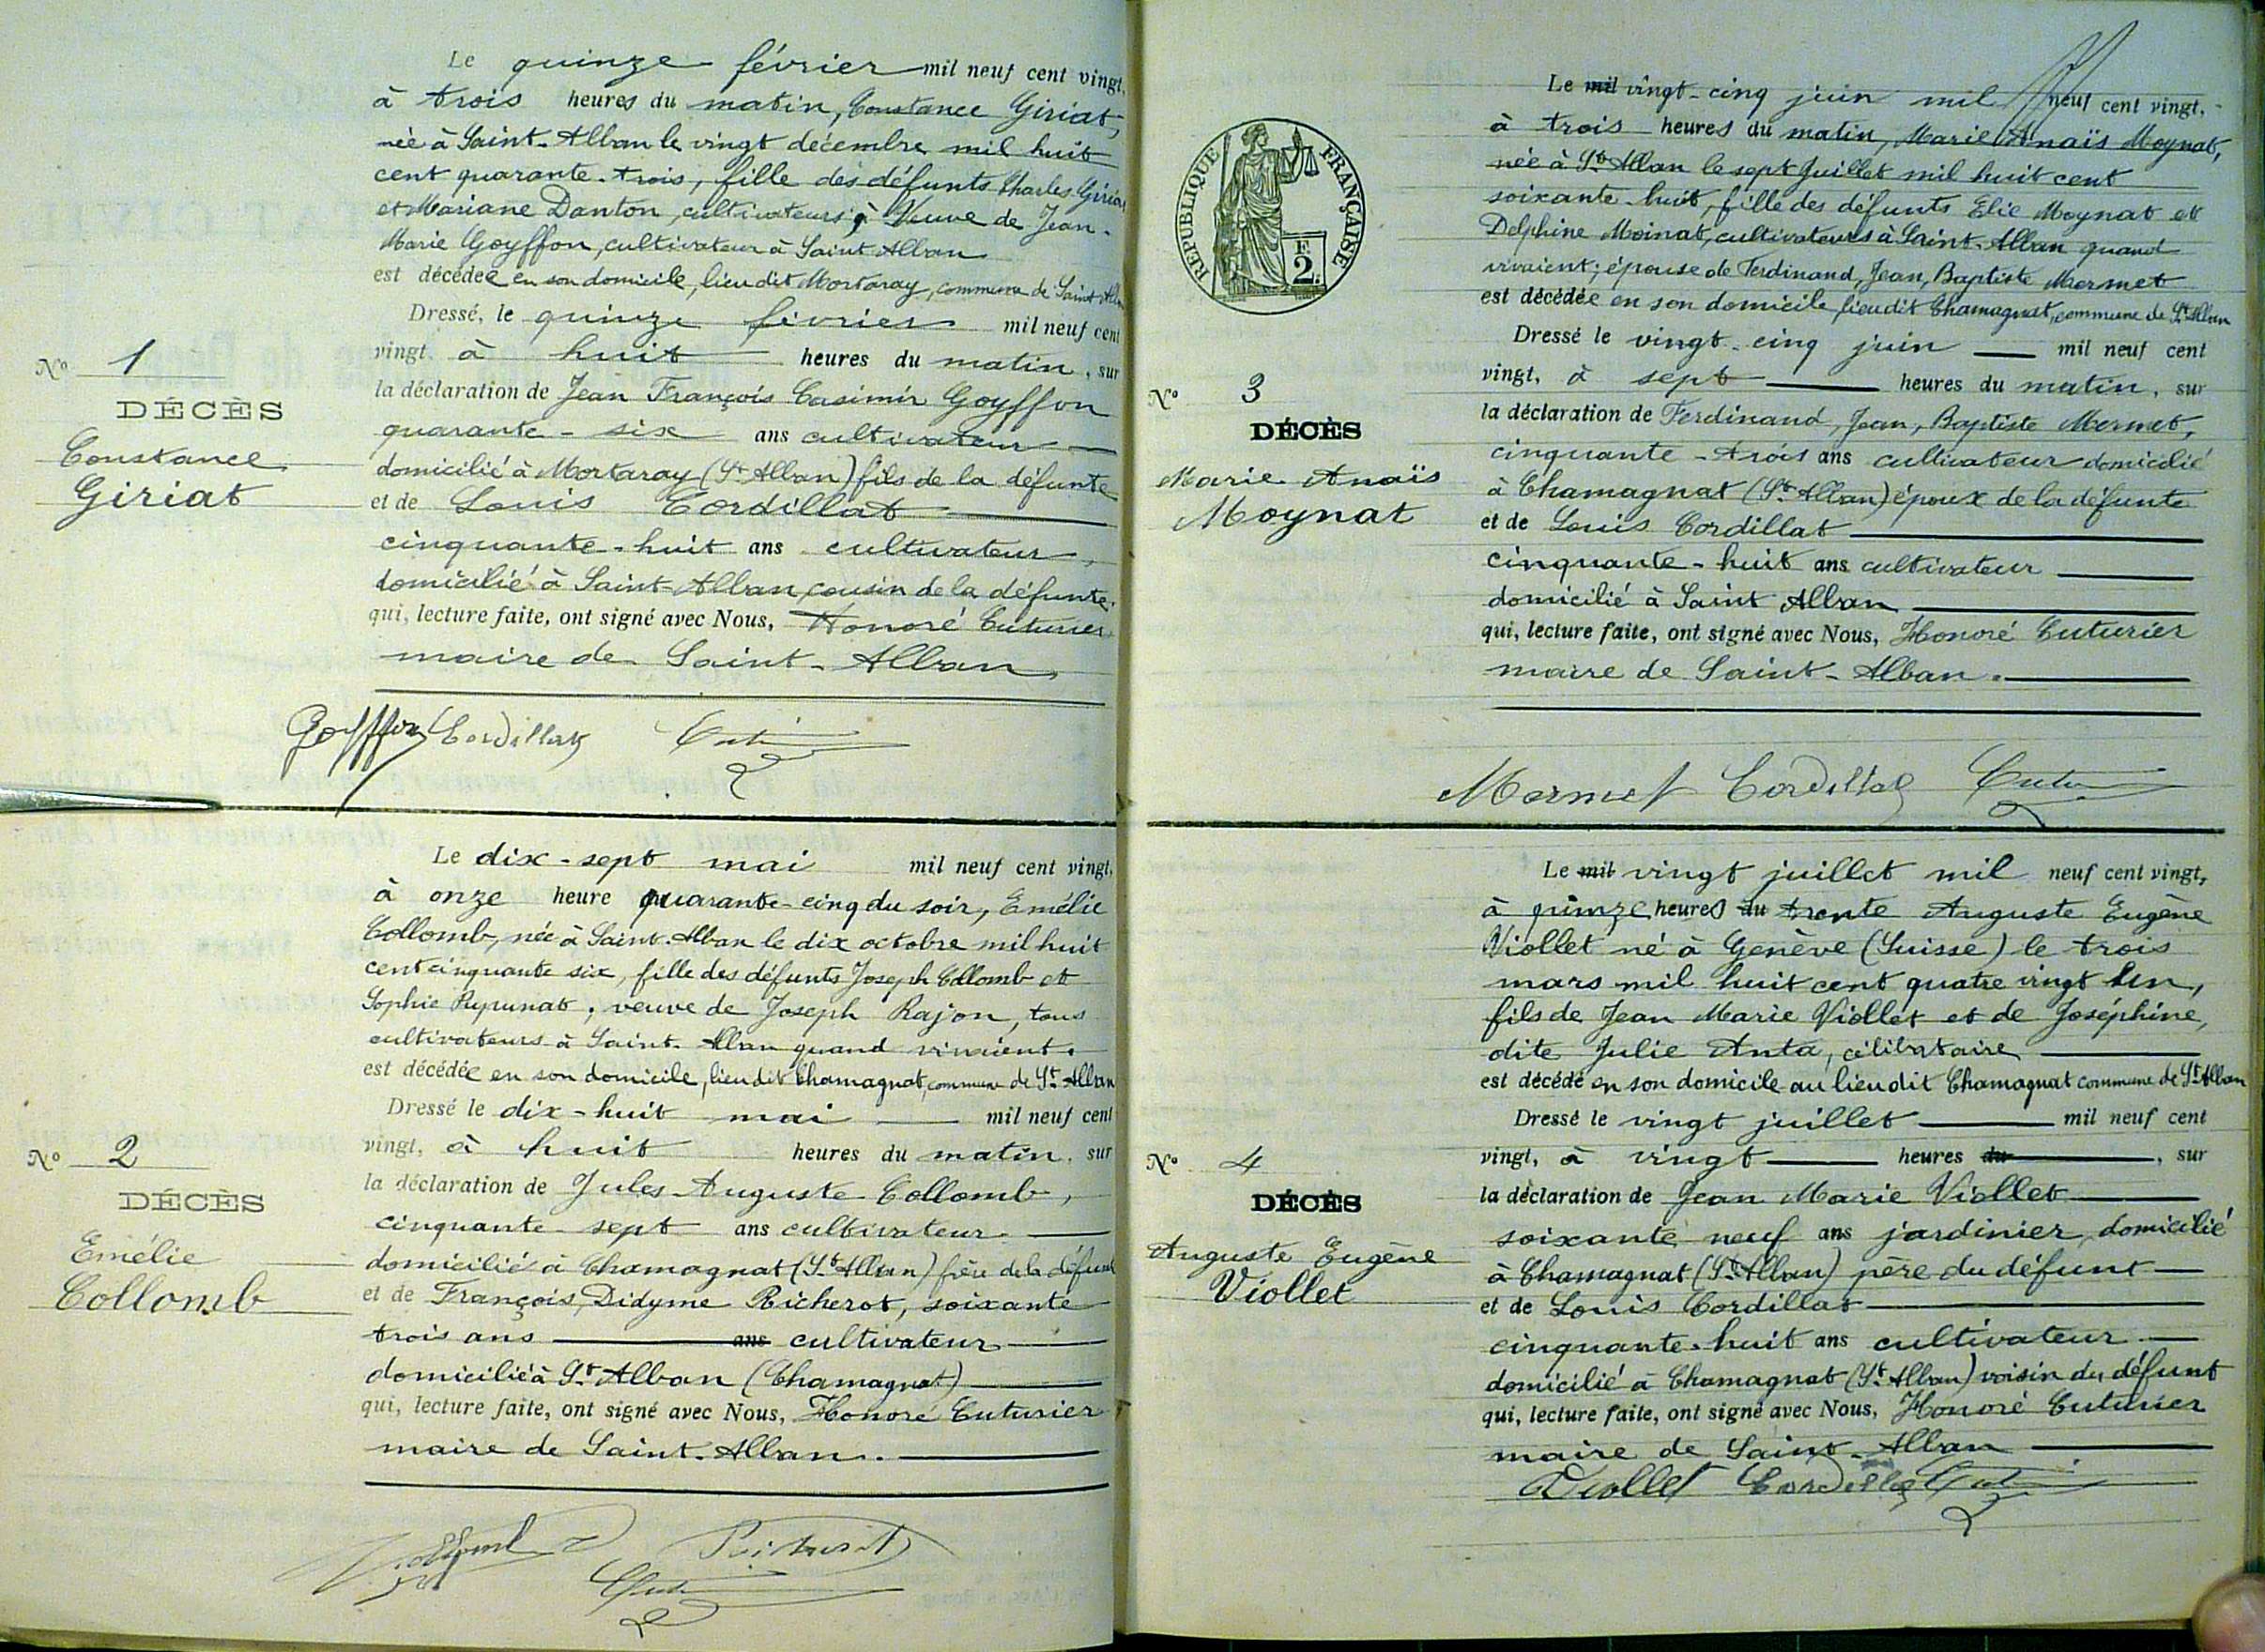 Le quinze février mil neuf cent vingt,
à trois heures du matin, Constance Giriat,
née à Saint-Alban le vingt décembre mil huit
cent quarante-trois, fille des défunts Charles Giriat
et Mariane Danton, cultivateurs, Veuve de Jean-
Marie Goyffon, cultivateur à Saint Alban
est décédée en son domicile, lieu dit Mortaray, commune de Saint Alban
Dressé, le quinze février mil neuf cent
vingt à huit heures du matin, sur
la déclaration de Jean François Casimir Goyffon
quarante-six ans cultivateur
domicilié à Mortaray (St Alban) fils de la défunte
et de Louis Cordillat
cinquante-huit ans cultivateur,
domicilié à Saint-Alban, cousin de la défunte.
qui, lecture faite, ont signé avec Nous, Honoré Cuturier
maire de Saint-Alban
No 1
DÉCÈS
Constance
Giriat
Goyffon Cordillat
Le dix-sept mai mil neuf cent vingt,
à onze heure quarante-cinq du soir, Emélie
Collomb, née à Saint-Alban le dix octobre mil huit
cent cinquante six, fille des défunts Joseph Collomb et
Sophie ; veuve de Joseph Rajon, tous
cultivateurs à Saint-Alban quand vivaient.
est décédée en son domicile, lieu dit Chamagnat, commune de St Alban
Dressé le dix-huit mai mil neuf cent
vingt, à huit heures du matin, sur
la déclaration de Jules Auguste Collomb,
cinquante-sept ans cultivateur
domiciliés à Chamagnat (St Alban) frère de la défunte
et de François, Didyme Richerot, soixante
trois ans ans cultivateur
domicilié à St Alban (Chamagnat)
qui, lecture faite, ont signé avec Nous, Honoré Cuturier
maire de Saint-Alban.
No 2
DÉCÈS
Emélie
Collomb
REPUBLIQUE FRANÇAISE
F
2
Le mil vingt-cinq juin mil neuf cent vingt,
à trois heures du matin, Marie Anaïs Moynat,
née à St Alban le sept Juillet mil huit cent
soixante-huit, fille des défunts Elie Moynat et
Delphine Moinat, cultivateurs à Saint-Alban quand
vivaient; épouse de Ferdinand, Jean, Baptiste Mermet
est décédée en son domicile, lieu dit Chamagnat, commune de St Alban
Dressé le vingt-cinq juin mil neuf cent
vingt, à sept heures du matin, sur
la déclaration de Ferdinand, Jean, Baptiste Mermet,
cinquante-trois ans cultivateur domicilié
à Chamagnat (St Alban) époux de la défunte
et de Louis Cordillat
cinquante-huit ans cultivateur
domicilié à Saint Alban
qui, lecture faite, ont signé avec Nous, Honoré Cuturier
maire de Saint-Alban.
No 3
DÉCÈS
Marie Anaïs
Moynat
Mermet Cordillat
Le mil vingt juillet mil neuf cent vingt,
à quinze heures du trente Auguste Eugène
Viollet né à Genève (Suisse) le trois
mars mil huit cent quatre vingt un,
fils de Jean Marie Viollet et de Joséphine,
dite Julie Anta, célibataire
est décédé en son domicile au lieu dit Chamagnat commune de St Alban
Dressé le vingt juillet mil neuf cent
vingt, à vingt heures du, sur
la déclaration de Jean Marie Viollet
soixante neuf ans jardinier, domicilié
à Chamagnat (St Alban) père du défunt
et de Louis Cordillat
cinquante-huit ans cultivateur
domicilié à Chamagnat (St Alban) voisin du défunt
qui, lecture faite, ont signé avec Nous, Honoré Cuturier
maire de Saint-Alban
No 4
DÉCÈS
Auguste Eugène
Viollet
Viollet Cordillat